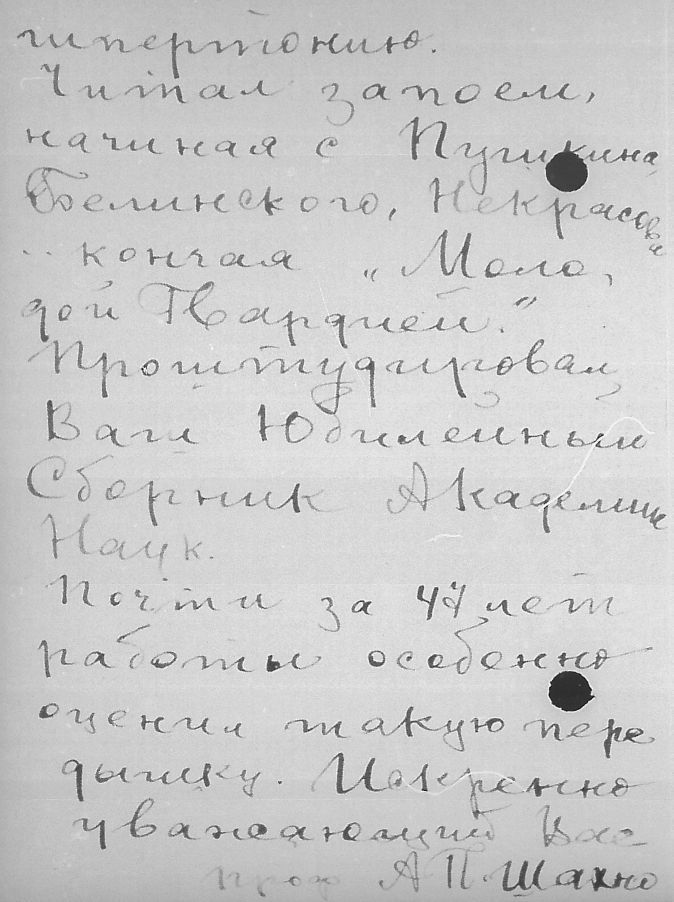 гипертонию.
Читал запоем,
начиная с Пушкина,
Белинского, Некрасова
кончая „Моло-
дой Гвардией."
Проштудировал
Ваш Юбилейный
Сборник Академии
Наук.
Почти за 47 лет
работы особенно
оценил такую пере
дышку. Искренно
уважающий Вас
проф А.П. Шахно